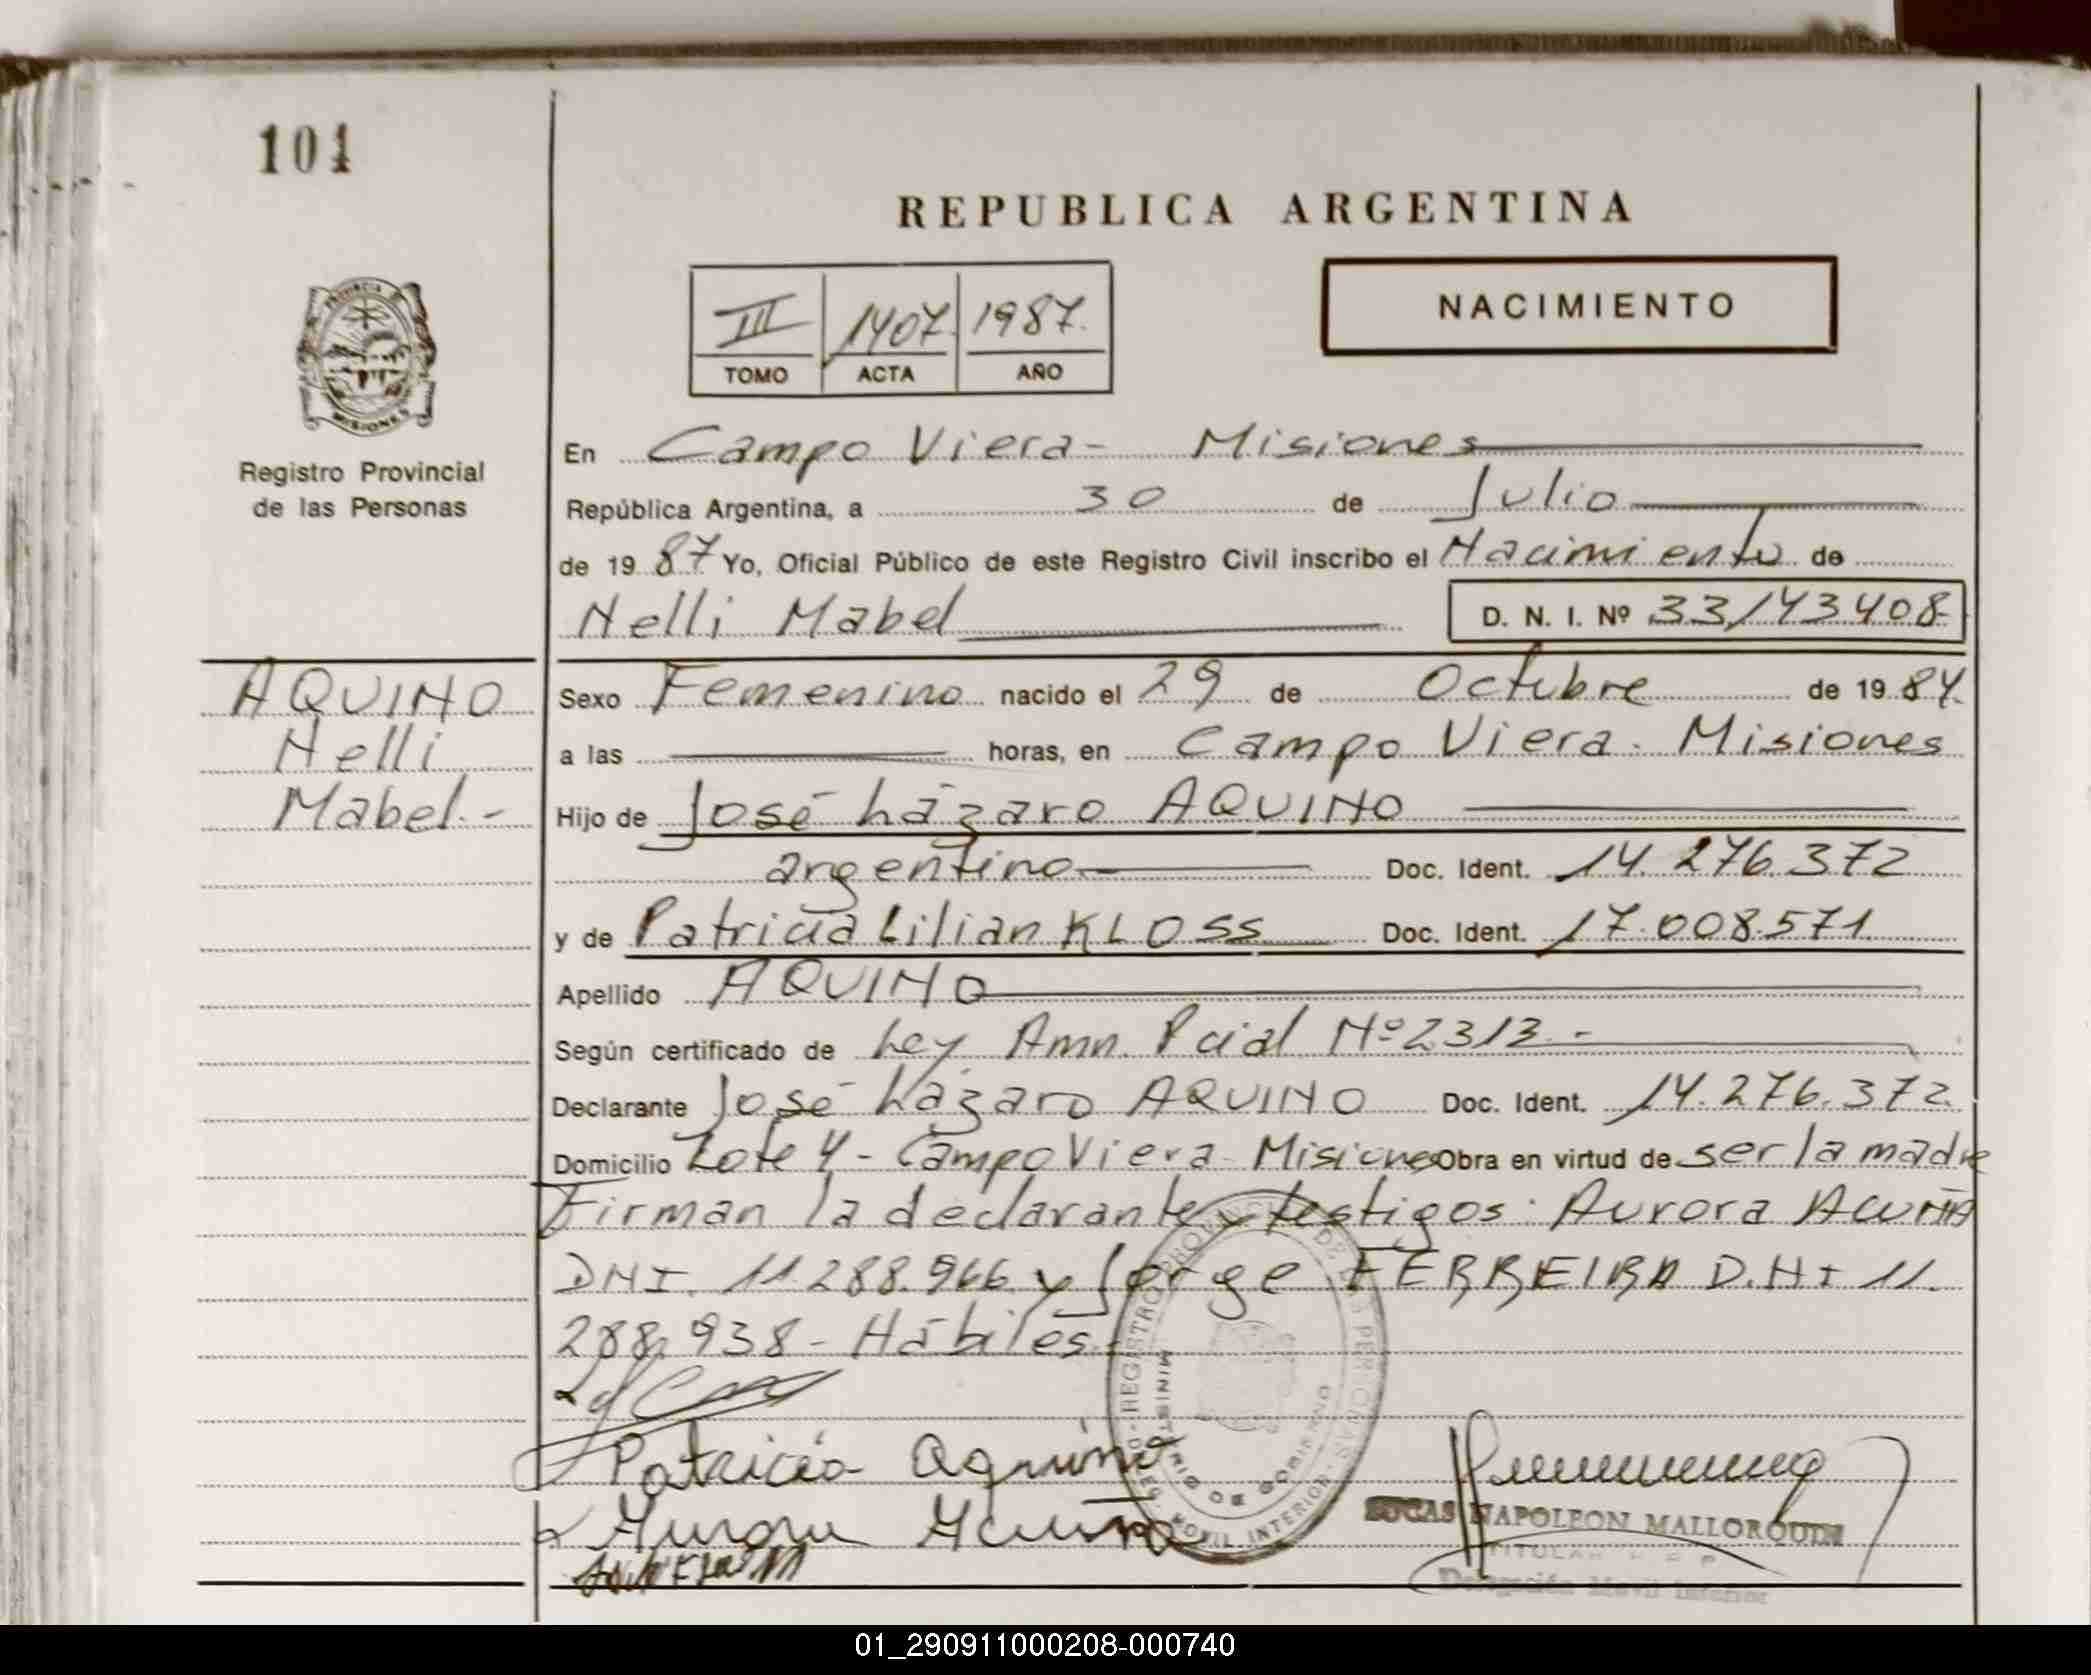 104
REPUBLICA ARGENTINA
III 1407 1987.
TOMO ACTA AÑO
NACIMIENTO
PROVINCIA DE
MISIONES
Registro Provincial
de las Personas
En Campo Viera - Misiones
República Argentina, a 30 de Julio
de 1987 Yo, Oficial Público de este Registro Civil inscribo el Nacimiento de
Nelli Mabel D. N. I. Nº 33/43408
AQUINO
Nelli
Mabel.-
Sexo Femenino nacido el 29 de Octubre de 1984.
a las horas, en Campo Viera - Misiones
Hijo de José Lázaro AQUINO
argentino Doc. Ident. 14.276.372
y de Patricia Lilian KLOSS Doc. Ident. 17.008.571
Apellido AQUINO
Según certificado de Ley Amn. Pcial Nº 2313.-
Declarante José Lázaro AQUINO Doc. Ident. 14.276.372
Domicilio Lote 4 - Campo Viera - Misiones Obra en virtud de ser la madre
Firman la declarante y testigos: Aurora ACUÑA
DNI. 11.288.966 y Jorge FERREIRA D.N.I 11.
288.938 - Hábiles.-
Patricia Aquino
Aurora Acuña
REGISTRO PROVINCIAL DE LAS PERSONAS
MINISTERIO DE GOBIERNO
MOVIL INTERIOR
LUCAS NAPOLEON MALLORQUIN
TITULAR
Delegación Móvil Interior
01_290911000208-000740